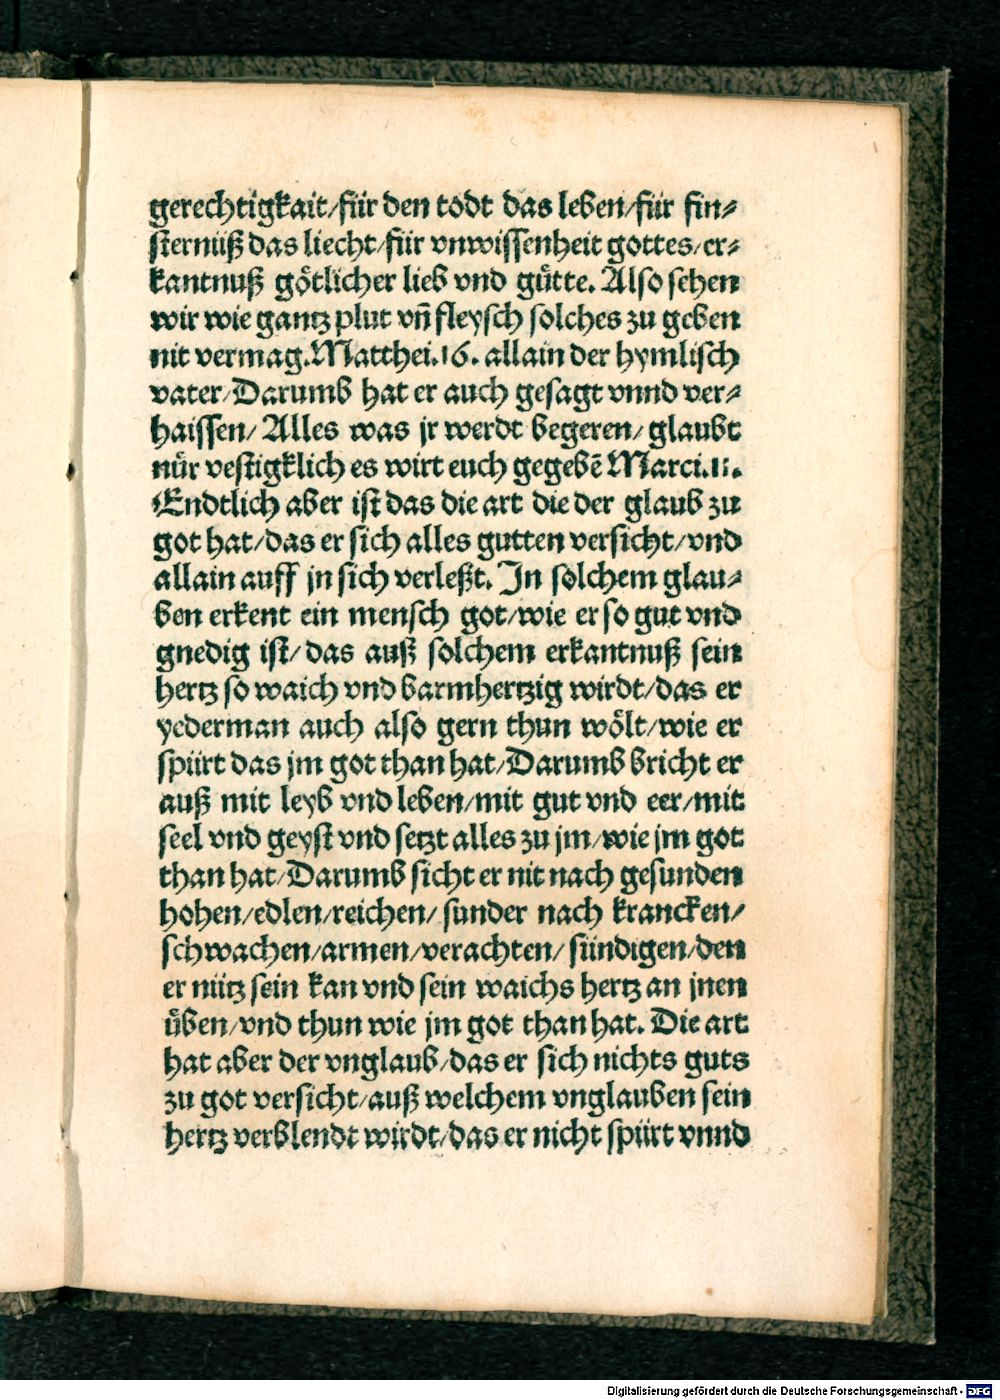 gerechtigkait/für den todt das leben/für fin⸗
sternüß das liecht/für vnwissenheit gottes/er⸗
kantnuß goͤtlicher lieb vnd guͤtte. Also sehen
wir wie gantz plut vn̄ fleysch solches zu geben
nit vermag. Matthei.16. allain der hymlisch
vater/Darumb hat er auch gesagt vnnd ver⸗
haissen/Alles was jr werdt begeren/glaubt
nuͤr vestigklich es wirt euch gegebē Marci.11.
Endtlich aber ist das die art die der glaub zu
got hat/das er sich alles gutten versicht/vnd
allain auff jn sich verleßt. In solchem glau⸗
ben erkent ein mensch got/wie er so gut vnd
gnedig ist/das auß solchem erkantnuß sein
hertz so waich vnd barmhertzig wirdt/das er
yederman auch also gern thun woͤlt/wie er
spürt das jm got than hat/Darumb bricht er
auß mit leyb vnd leben/mit gut vnd eer/mit
seel vnd geyst vnd setzt alles zu jm/wie jm got
than hat/Darumb sicht er nit nach gesunden
hohen/edlen/reichen/sunder nach krancken/
schwachen/armen/verachten/sündigen/den
er nütz sein kan vnd sein waichs hertz an jnen
uͤben/vnd thun wie jm got than hat. Die art
hat aber der vnglaub/das er sich nichts guts
zu got versicht/auß welchem vnglauben sein
hertz verblendt wirdt/das er nicht spürt vnnd
Digitalisierung gefördert durch die Deutsche Forschungsgemeinschaft - DFG